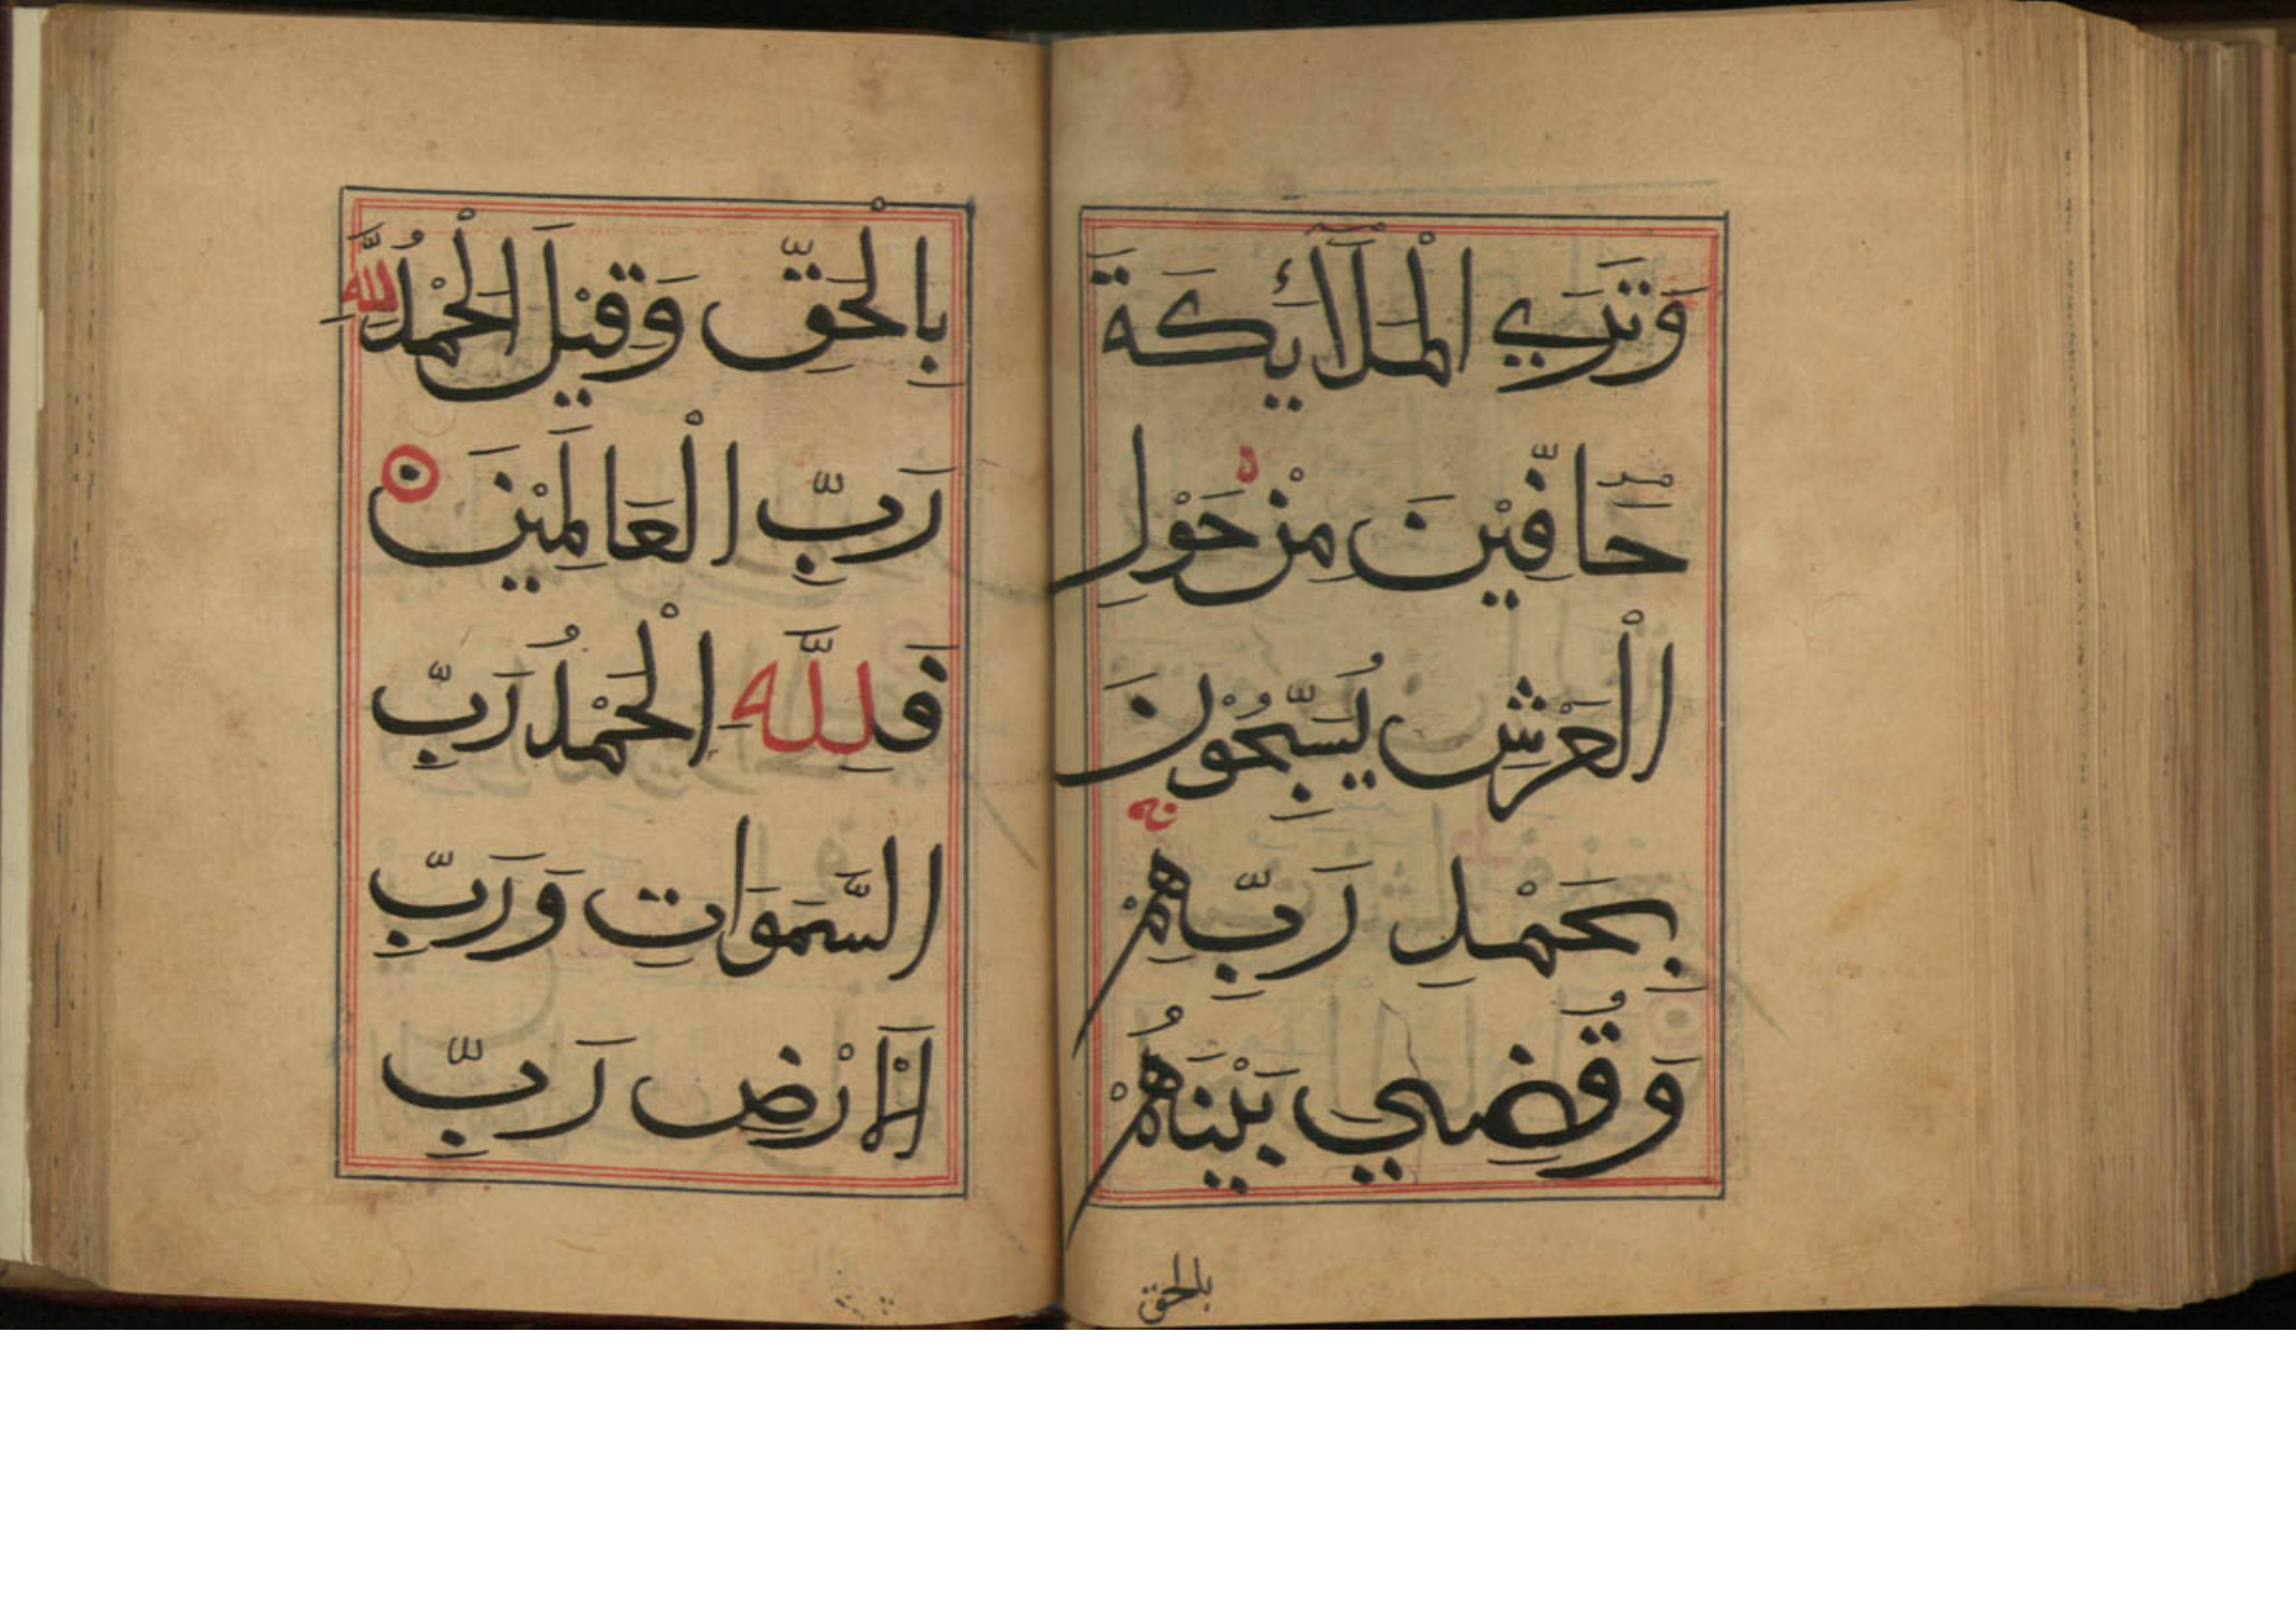 وَتَرَي الْمَلَآئِكَةَ
حَآفِّيْنَ مِنْ حَوْلِ
الْعَرْشِ يُسَبِّحُوْنَ
بِحَمْدِ رَبِّهِمْ
وَقُضِيَ بَيْنَهُمْ
بلحق
بِالْحَقِّ وَقِيْلَ الْحَمْدُ لِلَّهِ
رَبِّ الْعَالَمِيْنَ
فَلِلَّهِ الْحَمْدُ رَبِّ
السَّمَوَاتِ وَرَبِّ
الْاَرْضِ رَبِّ